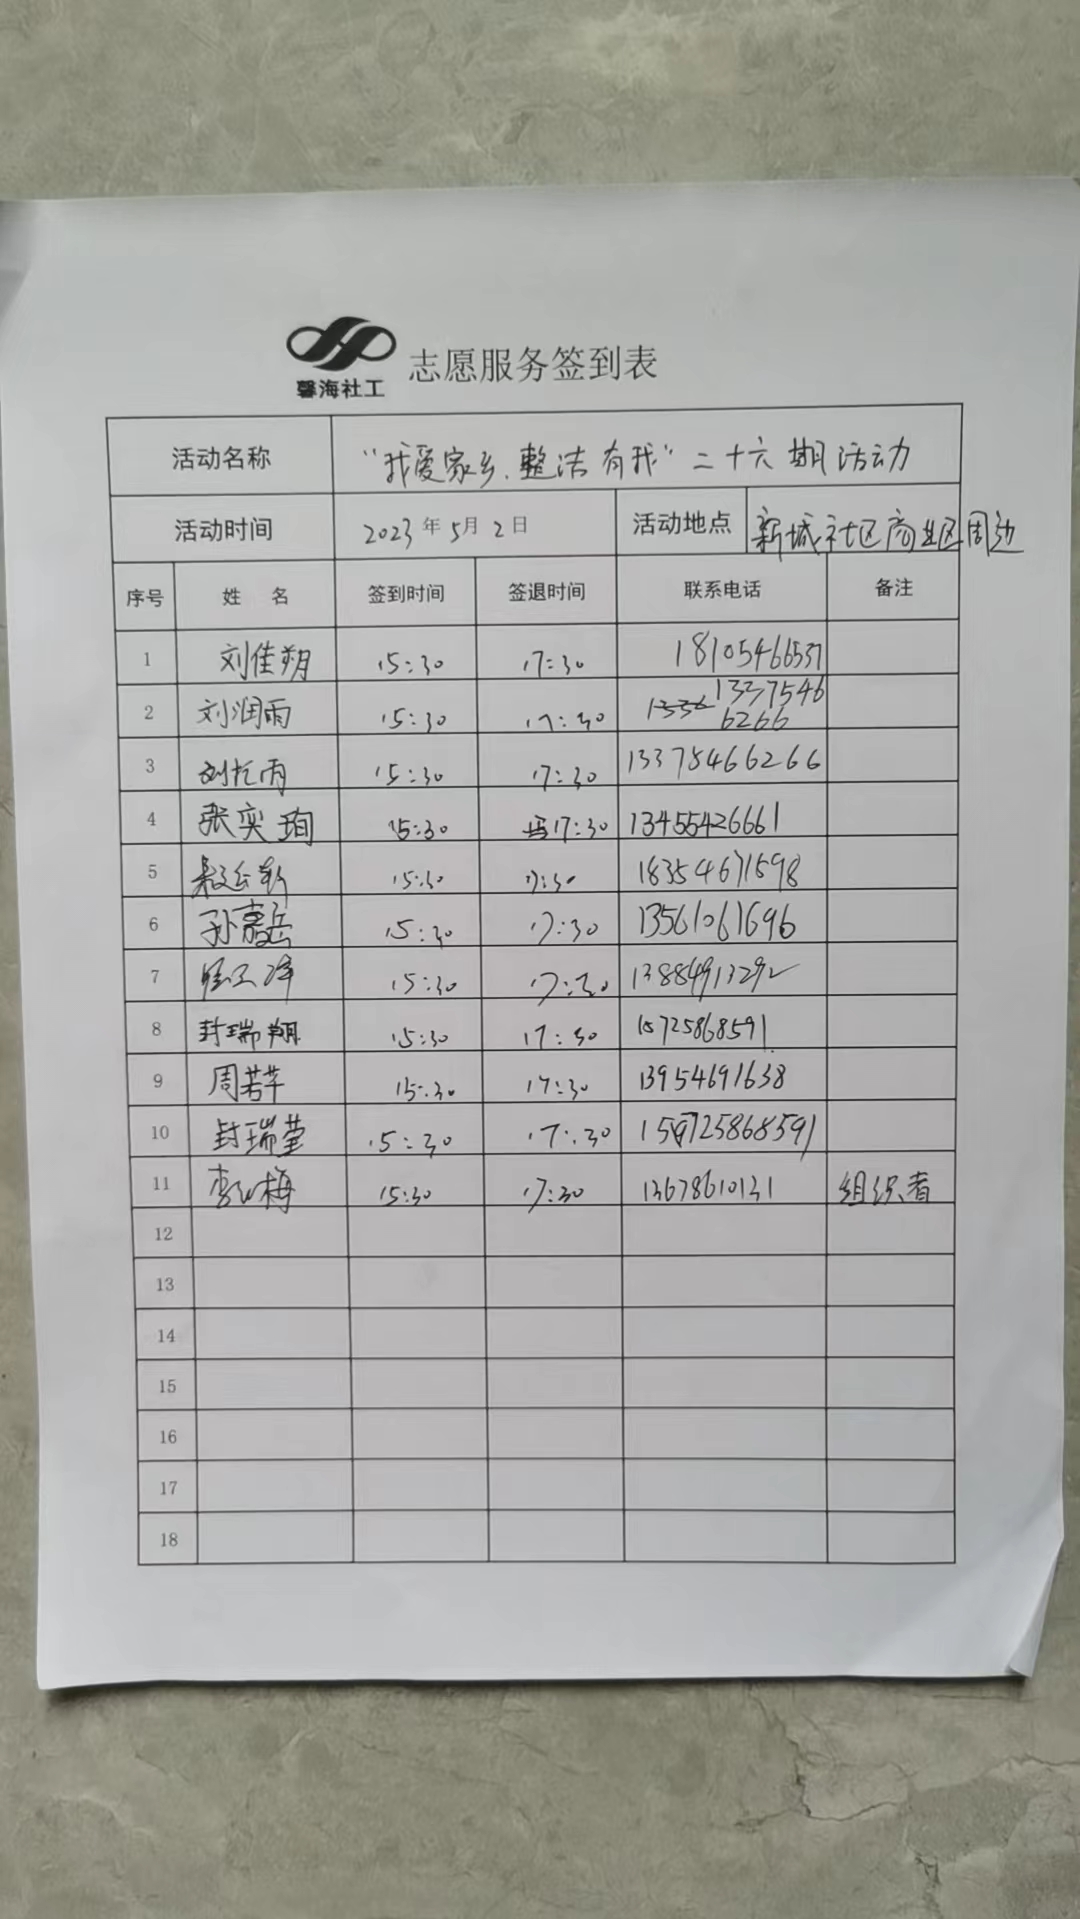 馨海社工 志愿服务签到表
活动名称 “我爱家乡、整洁有我”二十六期活动
活动时间 2023年5月2日 活动地点 新城社区商业区周边
序号 姓 名 签到时间 签退时间 联系电话 备注
1 刘佳朔 15:30 17:30 18105466537
2 刘润雨 15:30 17:30 1336 13375466266
3 15:30 17:30 13375466266
4 张奕珣 15:30 17:30 13455426661
5 15:30 17:30 18354671598
6 孙嘉岳 15:30 17:30 13561061696
7 15:30 17:30 13884913292
8 封瑞翔 15:30 17:30 15725868591
9 周若芊 15:30 17:30 13954691638
10 封瑞莹 15:30 17:30 15725868591
11 15:30 17:30 13678610131 组织者
12
13
14
15
16
17
18